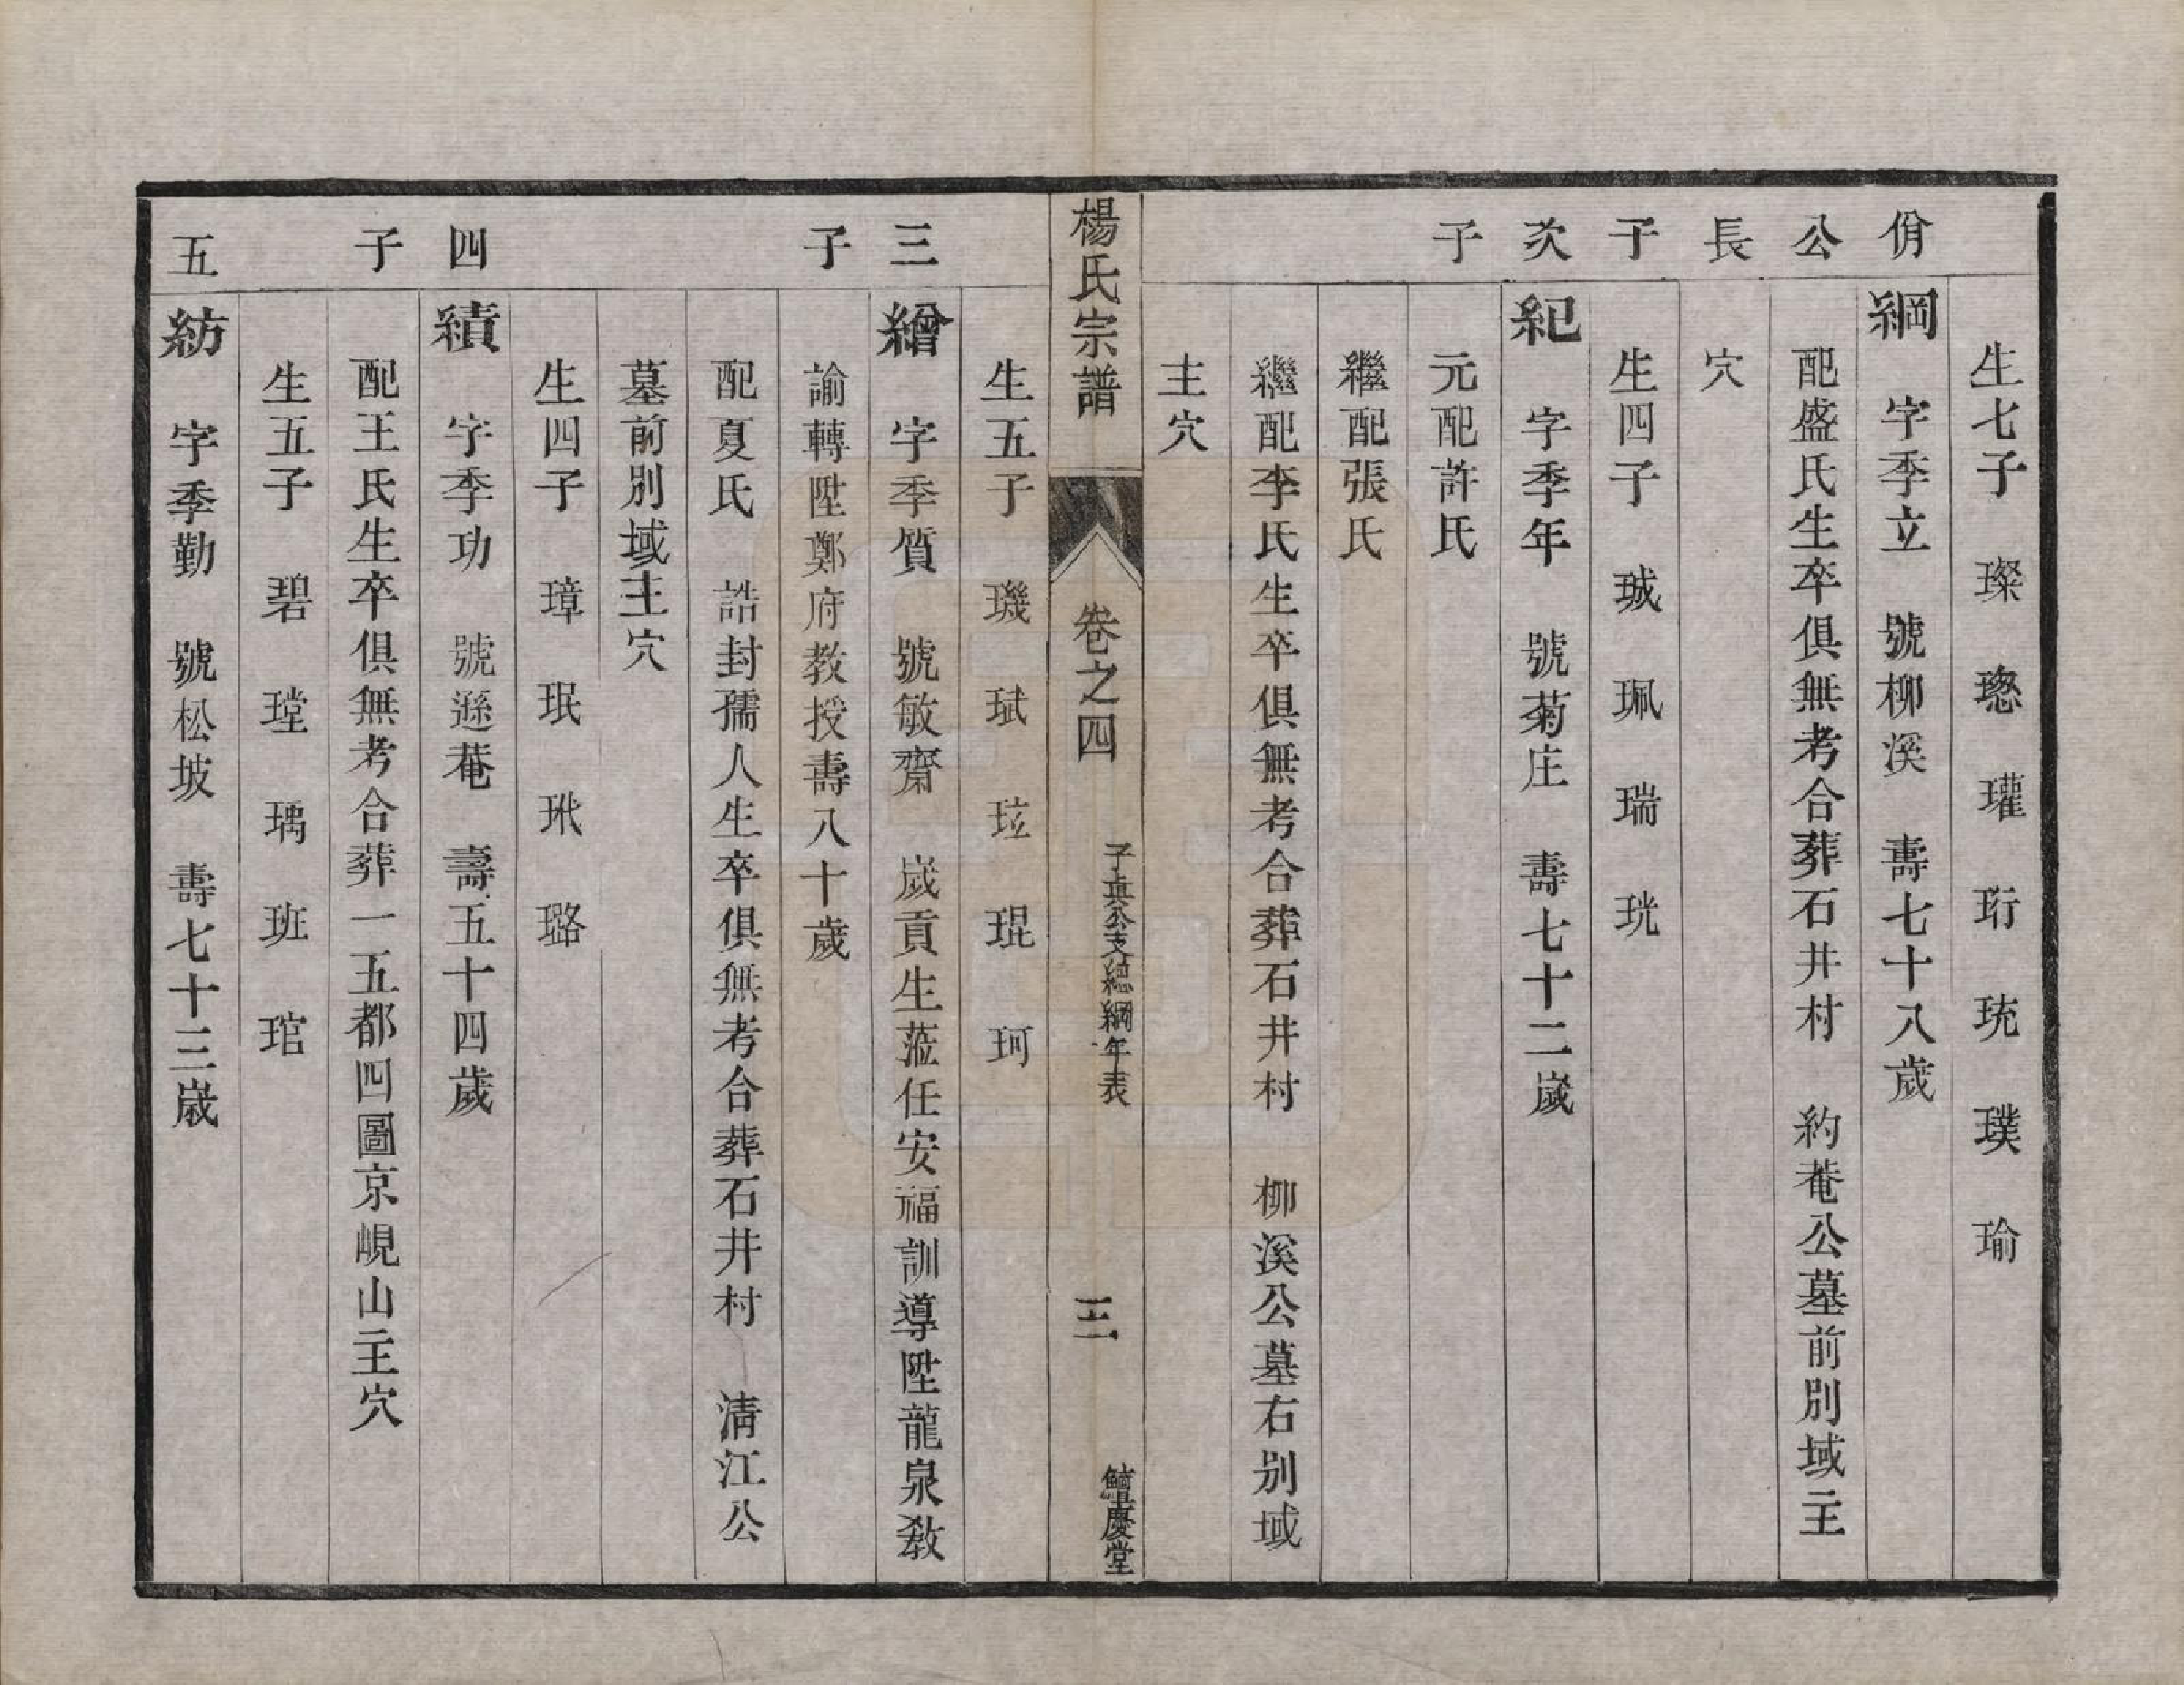 生七子　璨　璁　瓘　珩　珫　璞　瑜
佾公長子
綱　字季立　號柳溪　壽七十八歲
配盛氏生卒俱無考合葬石井村　約菴公墓前別域主
穴
生四子　珹　珮　瑞　珖
次子
紀　字季年　號菊庄　壽七十二歲
元配許氏
繼配張氏
繼配李氏生卒俱無考合葬石井村　柳溪公墓右別域
主穴
楊氏宗譜　卷之四　子真公支總綱年表　三　鱣慶堂
生五子　璣　珷　玹　琨　珂
三子
繪　字季質　號敏齋　歲貢生蒞任安福訓導陞龍泉教
諭轉陞鄭府教授壽八十歲
配夏氏　誥封孺人生卒俱無考合葬石井村　清江公
墓前別域主穴
生四子　璋　珉　玳　璐
四子
績　字季功　號遜菴　壽五十四歲
配王氏生卒俱無考合葬一五都四圖京峴山主穴
生五子　碧　瑝　瑀　班　琯
五
紡　字季勤　號松坡　壽七十三歲